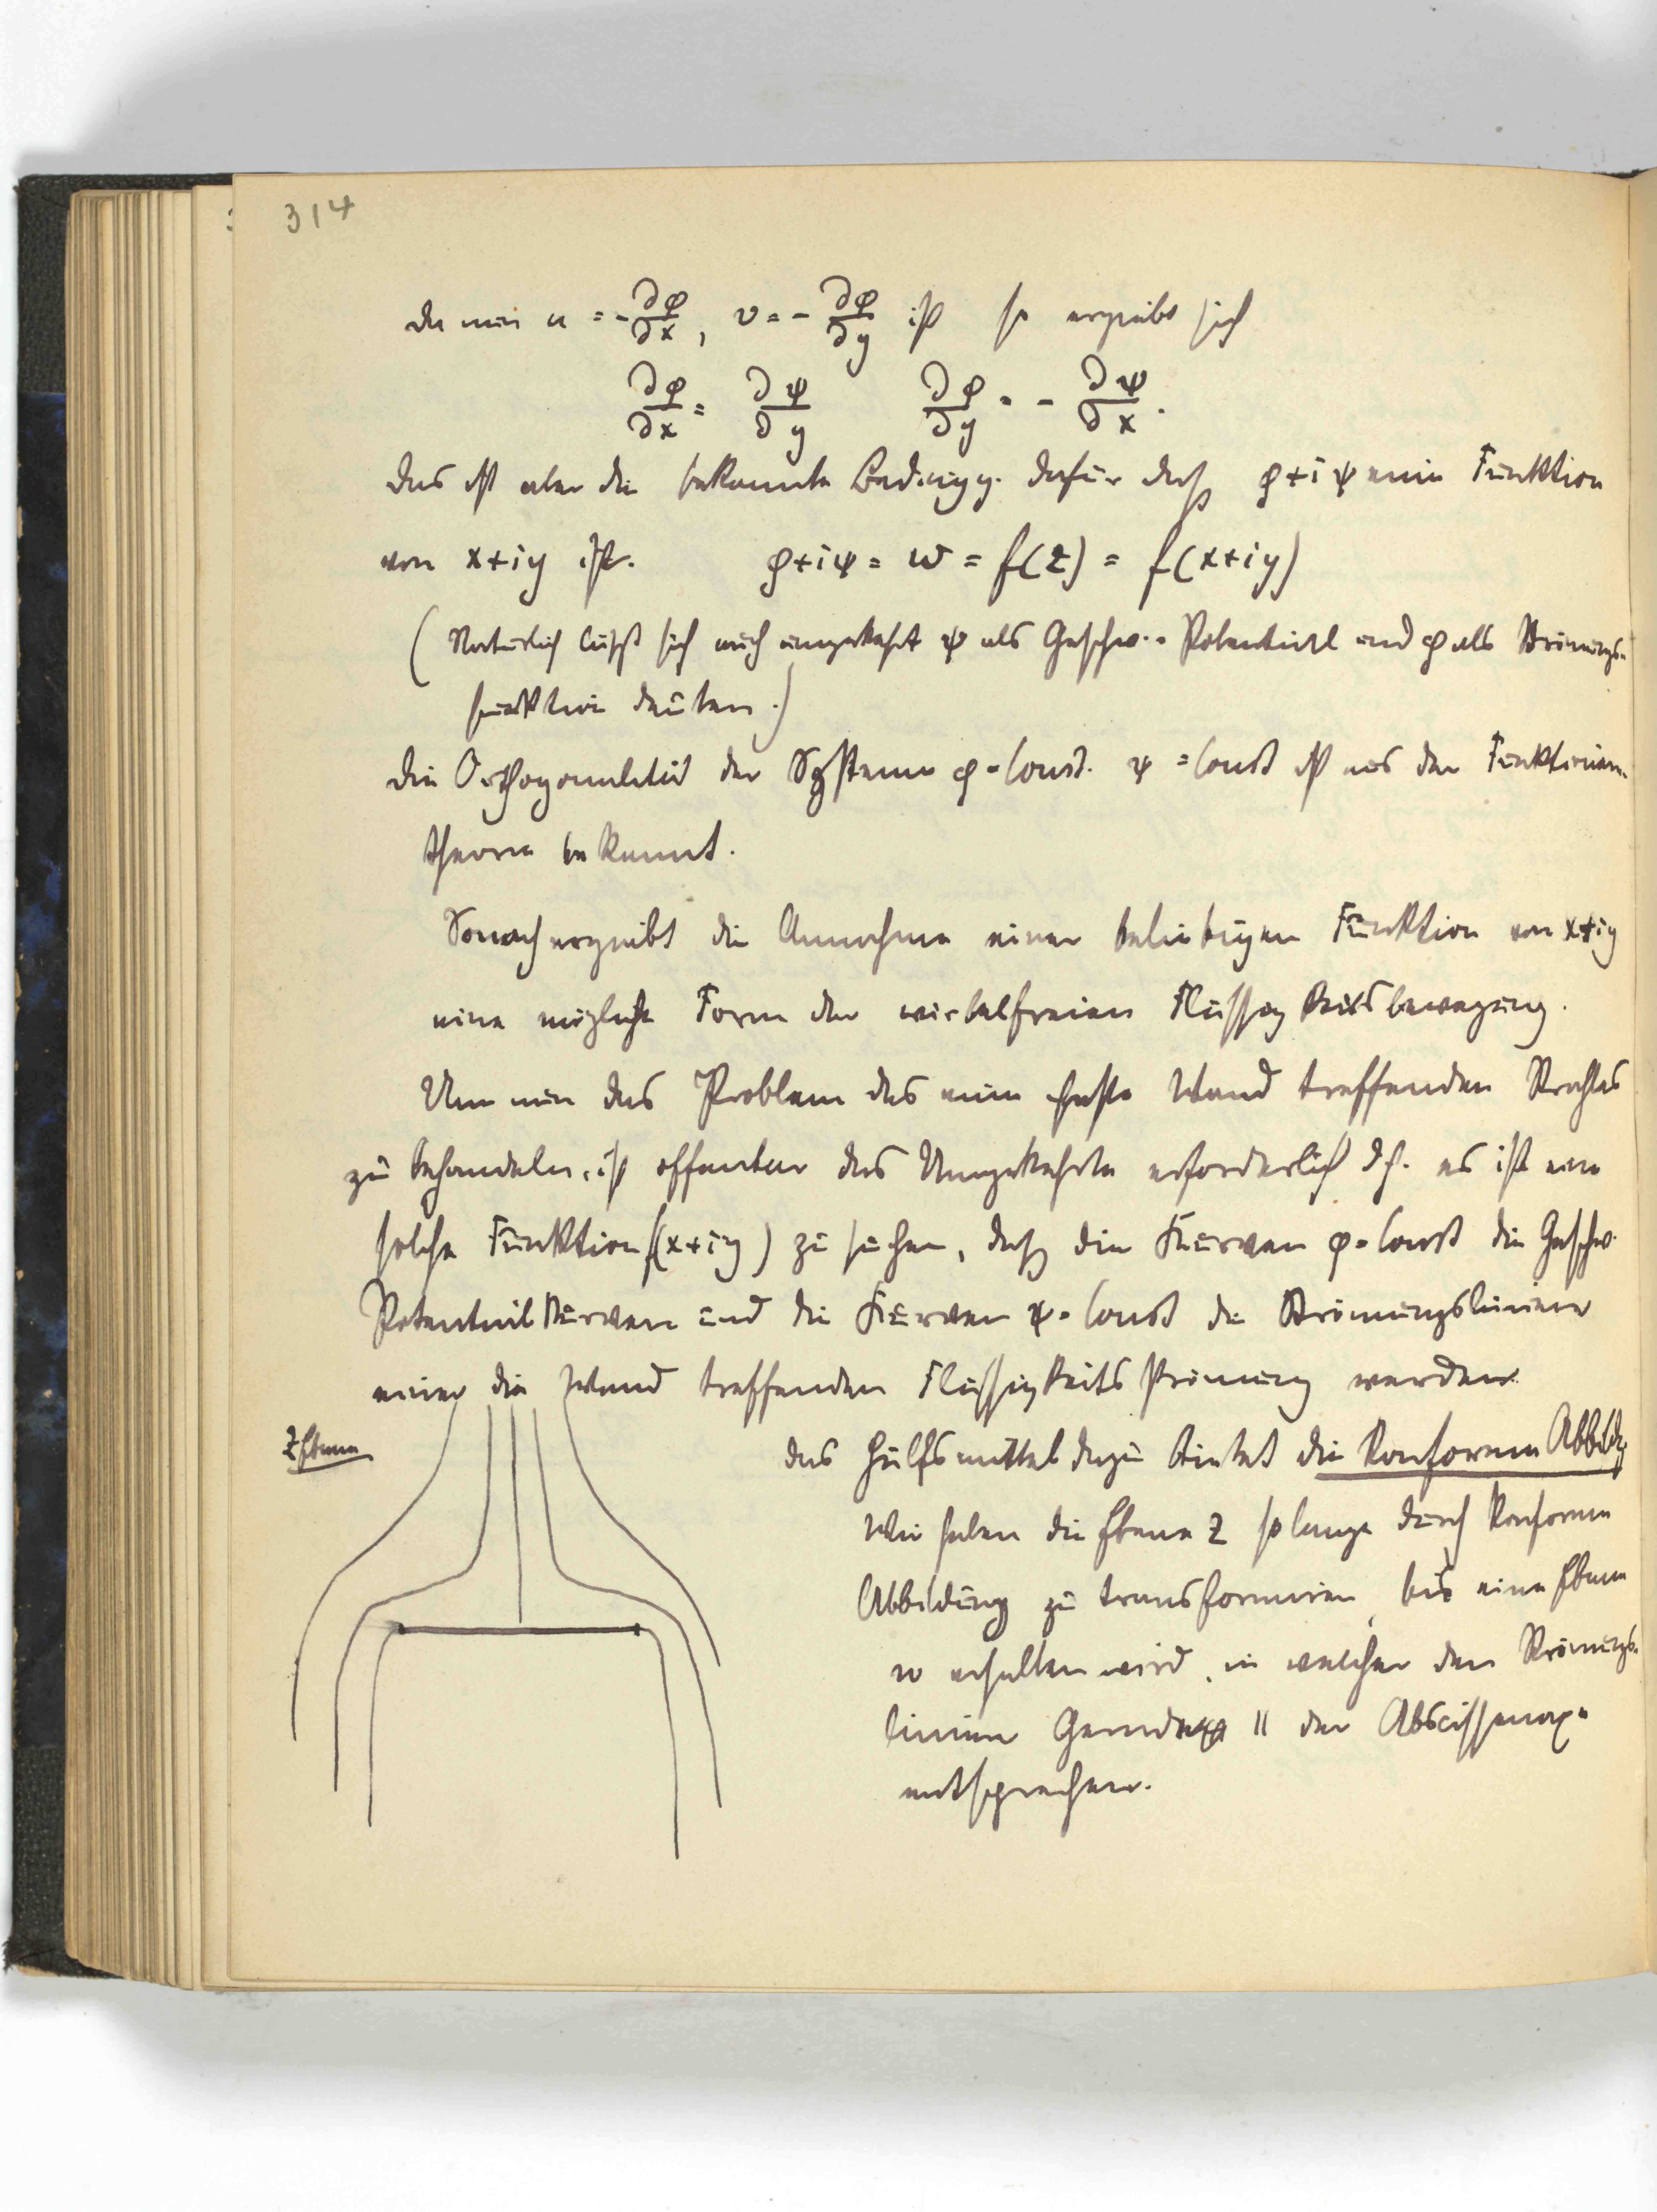 314
Da nun u = -∂φ/∂x, v = -∂φ/∂y ist so ergiebt sich
∂φ/∂x = ∂ψ/∂y ∂φ/∂y = -∂ψ/∂x.
Das ist aber die bekannte Bedingg. dafür daß φ+iψ eine Funktion
von x+iy ist. φ+iψ = w = f(z) = f(x+iy)
(Natürlich läßt sich auch umgekehrt ψ als Geschw.-Potential und φ als Strömungs-
funktion deuten.)
Die Orthogonalität der Systeme φ=Const. ψ=Const ist aus der Funktionen-
theorie bekannt.
Sonach ergiebt die Annahme einer beliebigen Funktion von x+iy
eine mögliche Form der wirbelfreien Flüssigkeitsbewegung.
Um nun das Problem des eine feste Wand treffenden Strahles
zu behandeln, ist offenbar das Umgekehrte erforderlich d.h. es ist eine
solche Funktion f(x+iy) zu suchen, daß die Kurven φ=Const die Geschw.
Potentialkurven und die Kurven ψ=Const die Strömungslinien
einer die Wand treffenden Flüssigkeitsströmung werden.
Z Ebene
Das Hülfsmittel dazu bietet die konforme Abbildg
Wir haben die Ebene z so lange durch konforme
Abbildung zu transformiren, bis eine Ebene
w erhalten wird, in welcher den Strömungs-
linien Gerade || der Abscissenaxe
entsprechen.